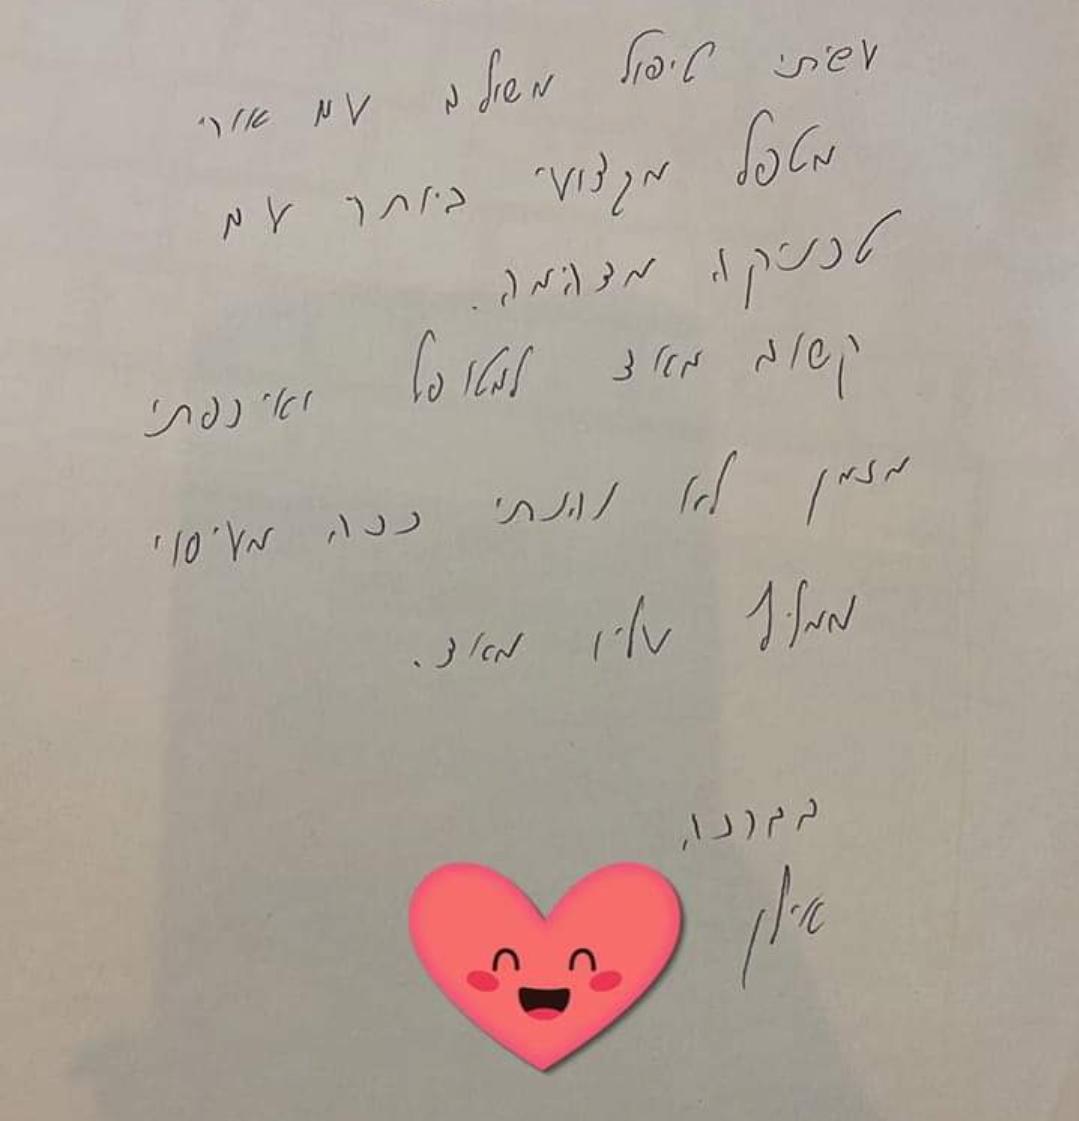 עשיתי טיפול משולב עם אורי
מטפל מקצועי ביותר עם
טכניקה מדהימה.
קשוב מאוד למטופל ואיכפתי
מזמן לא נהנתי ככה מעיסוי
ממליץ עליו מאוד.
בברכה,
אילן